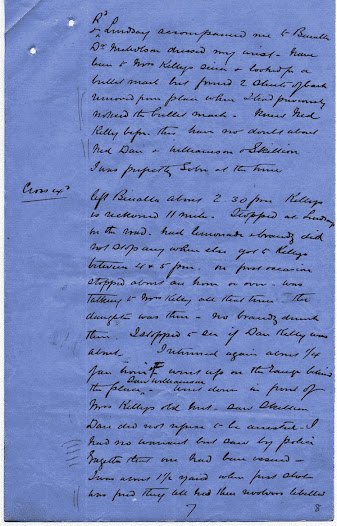 Rd
& Lindsay accompanied me to Benalla
Dr Nicholson dressed my wrist - Have
been to Mrs Kellys since & looked for a
bullet mark but found 2 sheets of bark
removed from place where I had previously
noticed the bullet mark - Knew Ned
Kelly before this have no doubts about
Ned Dan & Williamson & Skillion
I was perfectly Sober at the time
Cross exd
left Benalla about 2.30 pm Kellys
is reckoned 11 miles. Stopped at Lindsay
on the road. had lemonade & brandy did
not stop any where else got to Kellys
between 4 & 5 pm. on first occasion
stopped about an hour or over - was
talking to Mrs Kelly all that time The
daughter was there - no brandy drunk
there. I stopped to see if Dan Kelly was
about. I returned again about 1/4
of an hour. went up on the range behind
the place, saw Williamson - went down in front of
Mrs Kellys old hut. saw Skillion
Dan did not refuse to be arrested - I
had no warrant but saw by police
Gazette that one had been issued -
I was about 1 1/2 yard when first shot
was fired they all had their revolvers
7
8